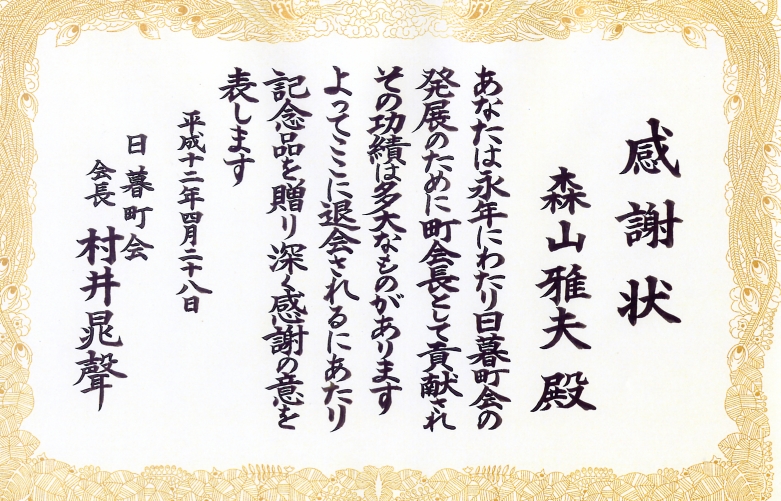 感謝状
森山雅夫殿
あなたは永年にわたり日暮町会の
発展のために町会長として貢献され
その功績は多大なものがあります
よってここに退会されるにあたり
記念品を贈り深く感謝の意を
表します
平成十二年四月二十八日
日暮町会
会長 村井晃聲